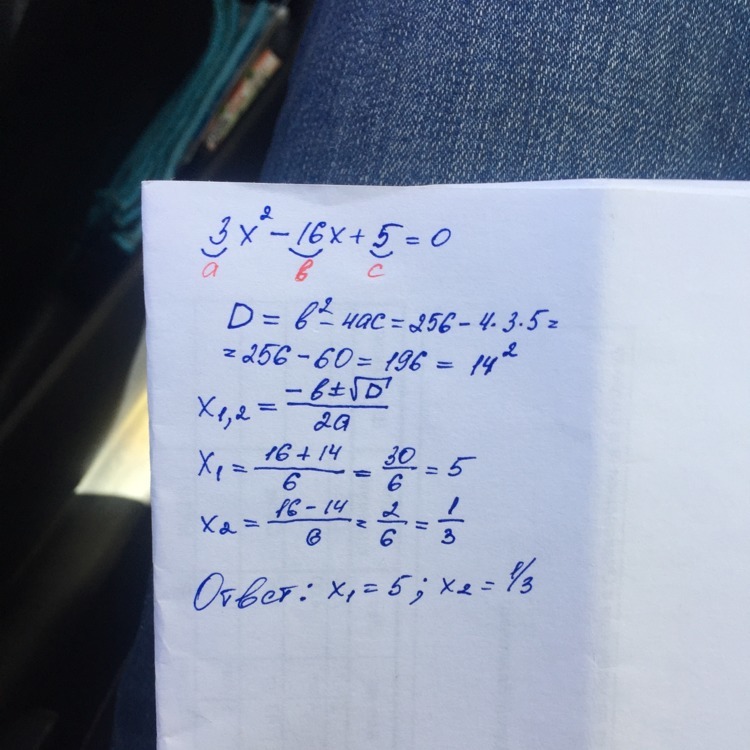 3x² − 16x + 5 = 0
a в c
D = в² − 4ac = 256 − 4·3·5 =
= 256 − 60 = 196 = 14²
x₁,₂ = (−в ± √D) / 2a
x₁ = (16 + 14) / 6 = 30/6 = 5
x₂ = (16 − 14) / 6 = 2/6 = 1/3
Ответ: x₁ = 5; x₂ = 1/3